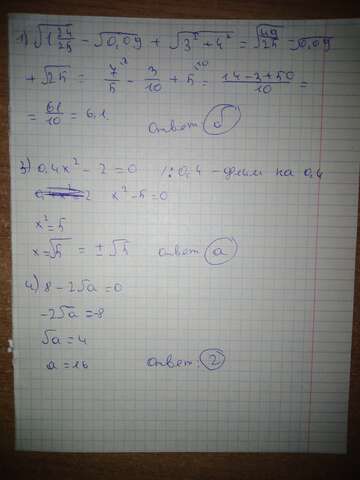 1) √1 24/25 - √0,09 + √3² + 4² = √49/25 = √0,09
+ √25 = 7/5 - 3/10 + 5 = 14-3+50/10 =
= 61/10 = 6,1. ответ б
3) 0,4x² - 2 = 0 /:0,4 - делим на 0,4
x² - 5 = 0
x² = 5
x = √5 = ± √5 ответ а
4) 8 - 2√a = 0
-2√a = -8
√a = 4
a = 16 ответ: 2